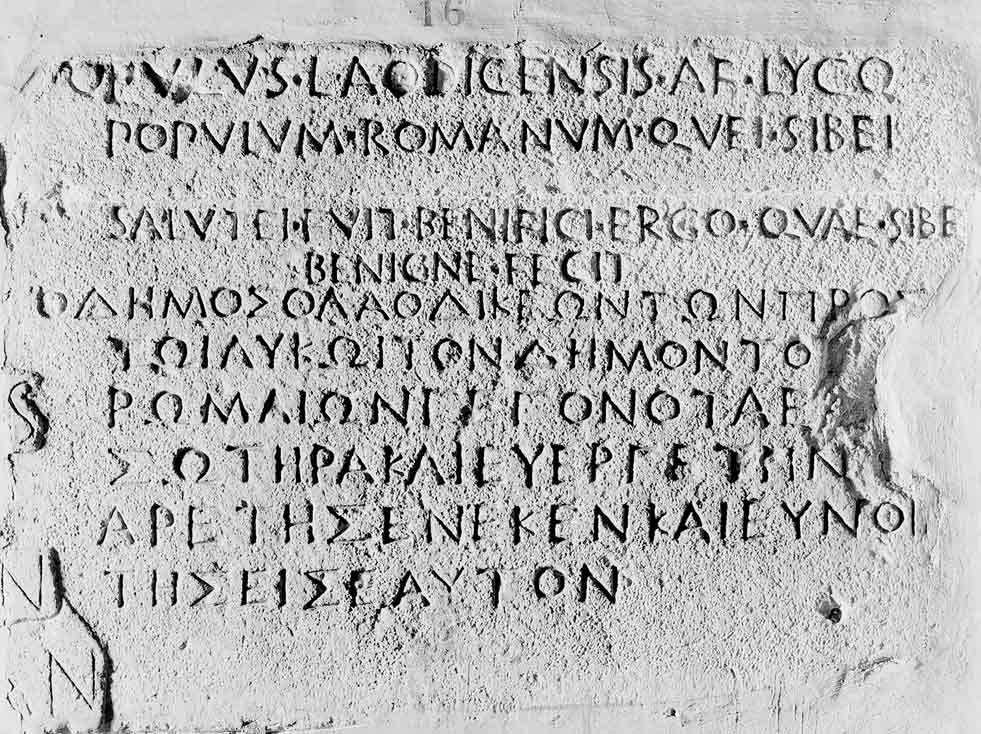 16
OPVLVS·LAODICENSIS·AF·LYCO
POPVLVM·ROMANVM·QVEI·SIBEI
SALVTEI·FVIT·BENIFICI·ERGO·QVAE·SIBE
BENIGNE·FECIT
ΟΔΗΜΟΣΟΛΑΟΔΙΚΕΩΝΤΩΝΠΡΟΣ
ΤΩΙΛΥΚΩΙΤΟΝΔΗΜΟΝΤΟ
ΡΩΜΑΙΩΝΓΕΓΟΝΟΤΑΕ
ΣΩΤΗΡΑΚΑΙΕΥΕΡΓΕΤΗΝ
ΑΡΕΤΗΣΕΝΕΚΕΝΚΑΙΕΥΝΟΙ
ΤΗΣΕΙΣΕΑΥΤΟΝ
Ν
Ν